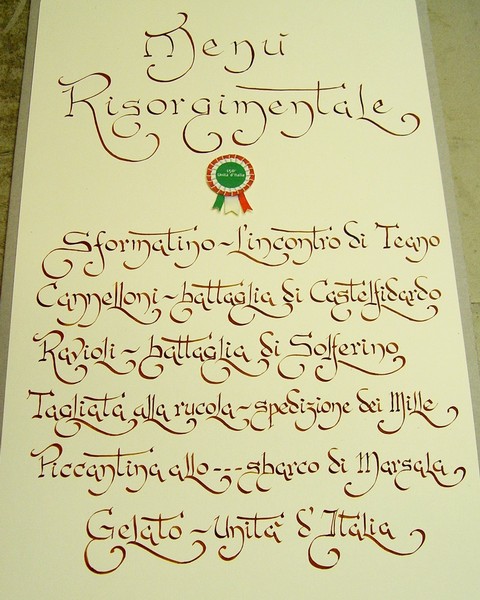 Menù
Risorgimentale
150°
Unità d'Italia
Sformatino ~ L'incontro di Teano
Cannelloni ~ battaglia di Castelfidardo
Ravioli ~ battaglia di Solferino
Tagliata alla rucola ~ spedizione dei Mille
Piccantina allo --- sbarco di Marsala
Gelato ~ Unità d'Italia